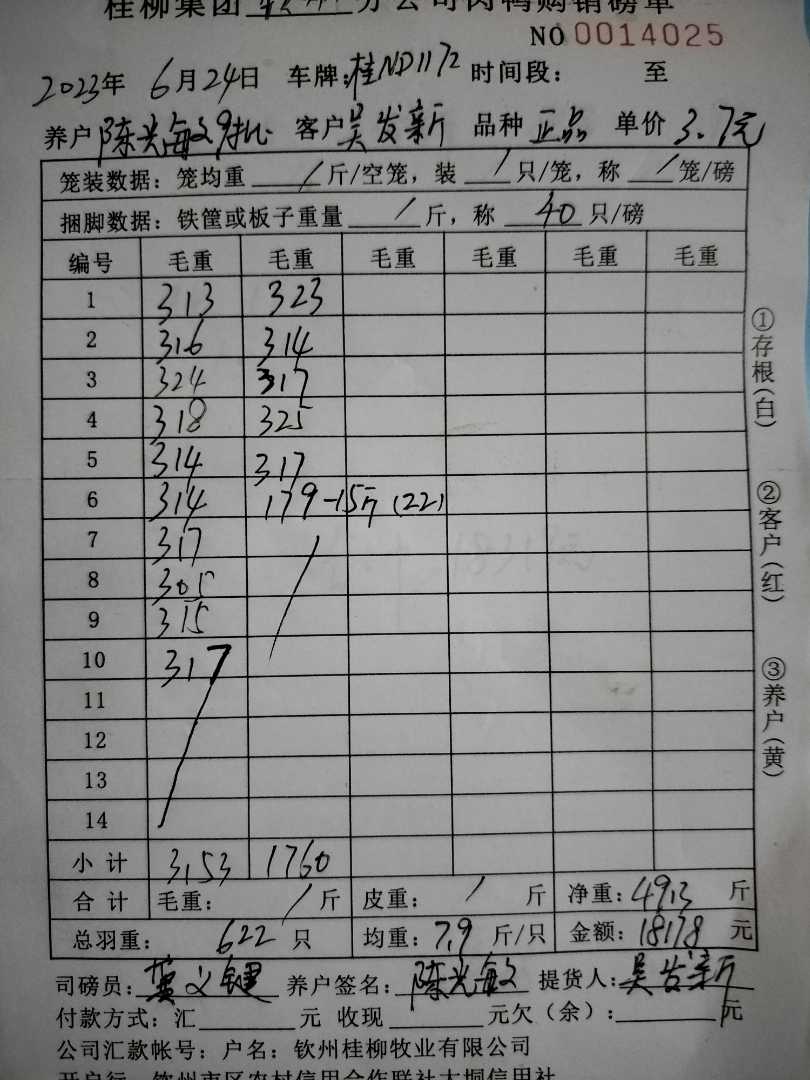 桂柳集团 钦州 分公司肉鸭购销磅单
NO 0014025
2023年 6月24日 车牌:桂ND1172 时间段: 至
养户 陈光敏9批 客户 吴发新 品种 正品 单价 3.7元
笼装数据: 笼均重 / 斤/空笼, 装 / 只/笼, 称 / 笼/磅
捆脚数据: 铁筐或板子重量 / 斤, 称 40 只/磅
编号 毛重 毛重 毛重 毛重 毛重 毛重
1 313 323
2 316 314
3 324 317
4 318 325
5 314 317
6 314 179-15斤(22)
7 317
8 305
9 315
10 317
11
12
13
14
小计 3153 1760
合计 毛重: / 斤 皮重: / 斤 净重: 4913 斤
总羽重: 622 只 均重: 7.9 斤/只 金额: 18178 元
司磅员: 义键 养户签名: 陈光敏 提货人: 吴发新
付款方式: 汇 元 收现 元欠(余): 元
公司汇款帐号: 户名: 钦州桂柳牧业有限公司
开户行 钦州市区农村信用合作联社大垌信用社
①存根(白)
②客户(红)
③养户(黄)